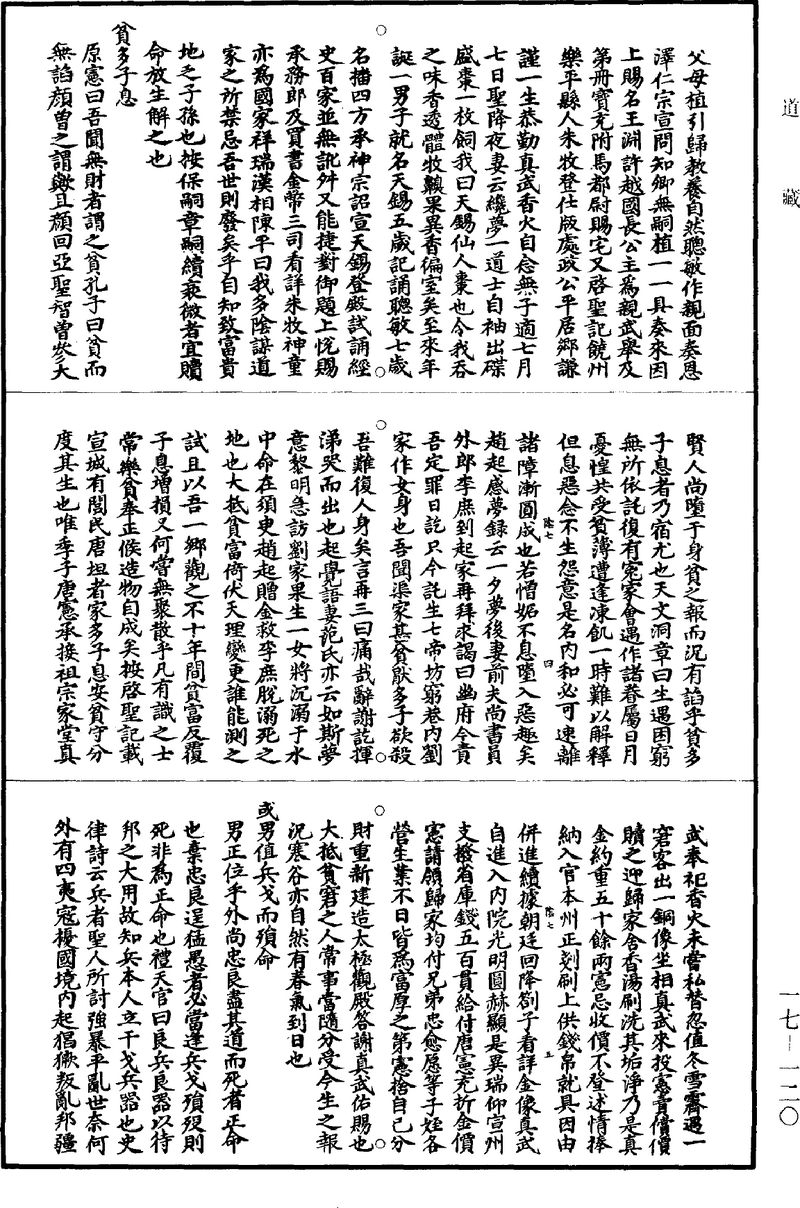 道藏
一七—一二〇
父母植引歸教養自然聰敏作親面奏恩
澤仁宗宣問知卿無嗣植一一具奏來因
上賜名王淵許越國長公主為親武舉及
第冊寶充附馬都尉賜宅又啓聖記饒州
樂平縣人朱牧登仕版處政公平居鄉謙
謹一生恭勤真武香火自念無子適七月
七日聖降夜妻云纔夢一道士自袖出碟
盛棗一枚飼我曰天錫仙人棗也令我吞
之味香透體牧賴果異香徧室矣至來年
誕一男子就名天錫五歲記誦聰敏七歲
名播四方承神宗詔宣天錫登殿試誦經
史百家並無訛舛又能捷對御題上悅賜
承務郎及買書金幣三司看詳朱牧神童
亦為國家祥瑞漢相陳平曰我多陰謀道
家之所禁忌吾世則廢矣乎自知致富貴
地乏子孫也按保嗣章嗣續衰微者宜贖
命放生解之也
貧多子息
原憲曰吾聞無財者謂之貧孔子曰貧而
無諂顏曾之謂歟且顏回亞聖智曾參大
賢人尚墮于身貧之報而況有諂乎貧多
子息者乃宿尤也天文洞章曰生遇困窮
無所依託復有寃家會遇作諸眷屬日月
憂惶共受貧薄遭逢凍飢一時難以解釋
但息惡念不生怨意是名內和必可速離
諸障漸圓成也若憎妬不息墮入惡趣矣
趙起感夢録云一夕夢後妻前夫尚書員
外郎李庶到起家再拜求謁曰幽府令責
吾定罪日訖只今託生七帝坊窮巷內劉
家作女身也吾聞渠家甚貧厭多子欲殺
吾難復人身矣言再三曰痛哉辭謝訖揮
涕哭而出也起覺語妻范氏亦云如斯夢
意黎明急訪劉家果生一女將沉溺于水
中命在須臾趙起贈金救李庶脫溺死之
地也大抵貧富倚伏天理變更誰能測之
試且以吾一鄉觀之不十年間貧富反覆
子息增損又何嘗無聚散乎凡有識之士
常樂貧奉正候造物自成矣按啓聖記載
宣城有閭民唐坦者家多子息安貧守分
度其生也唯季子唐憲承接祖宗家堂真
武奉祀香火未嘗私替忽值冬雪霽遇一
窘客出一銅像坐相真武來投憲賣償價
贖之迎歸家舍香湯刷洗其垢淨乃是真
金約重五十餘兩憲忌收價不登述情捧
納入官本州正剡刷上供錢帛就具因由
併進續據朝廷回降劄子看詳金像真武
自進入內院光明圓赫顯是異瑞仰宣州
支撥省庫錢五百貫給付唐憲充折金價
憲請領歸家均付兄弟忠愈愿等子姪各
營生業不日皆為富厚之第憲捨自己分
財重新建造太極觀殿答謝真武佑賜也
大抵貧窘之人常事當隨分受今生之報
況寒谷亦自然有春氣到日也
或男值兵戈而殞命
男正位乎外尚忠良盡其道而死者正命
也棄忠良逞猛愚者必當逢兵戈殞歿則
死非為正命也禮天官曰良兵良器以待
邦之大用故知兵本人立干戈兵器也史
律詩云兵者聖人所討強暴平亂世奈何
外有四夷寇櫌國境內起猖獗叛亂邦疆
陰七
四
陰七
五